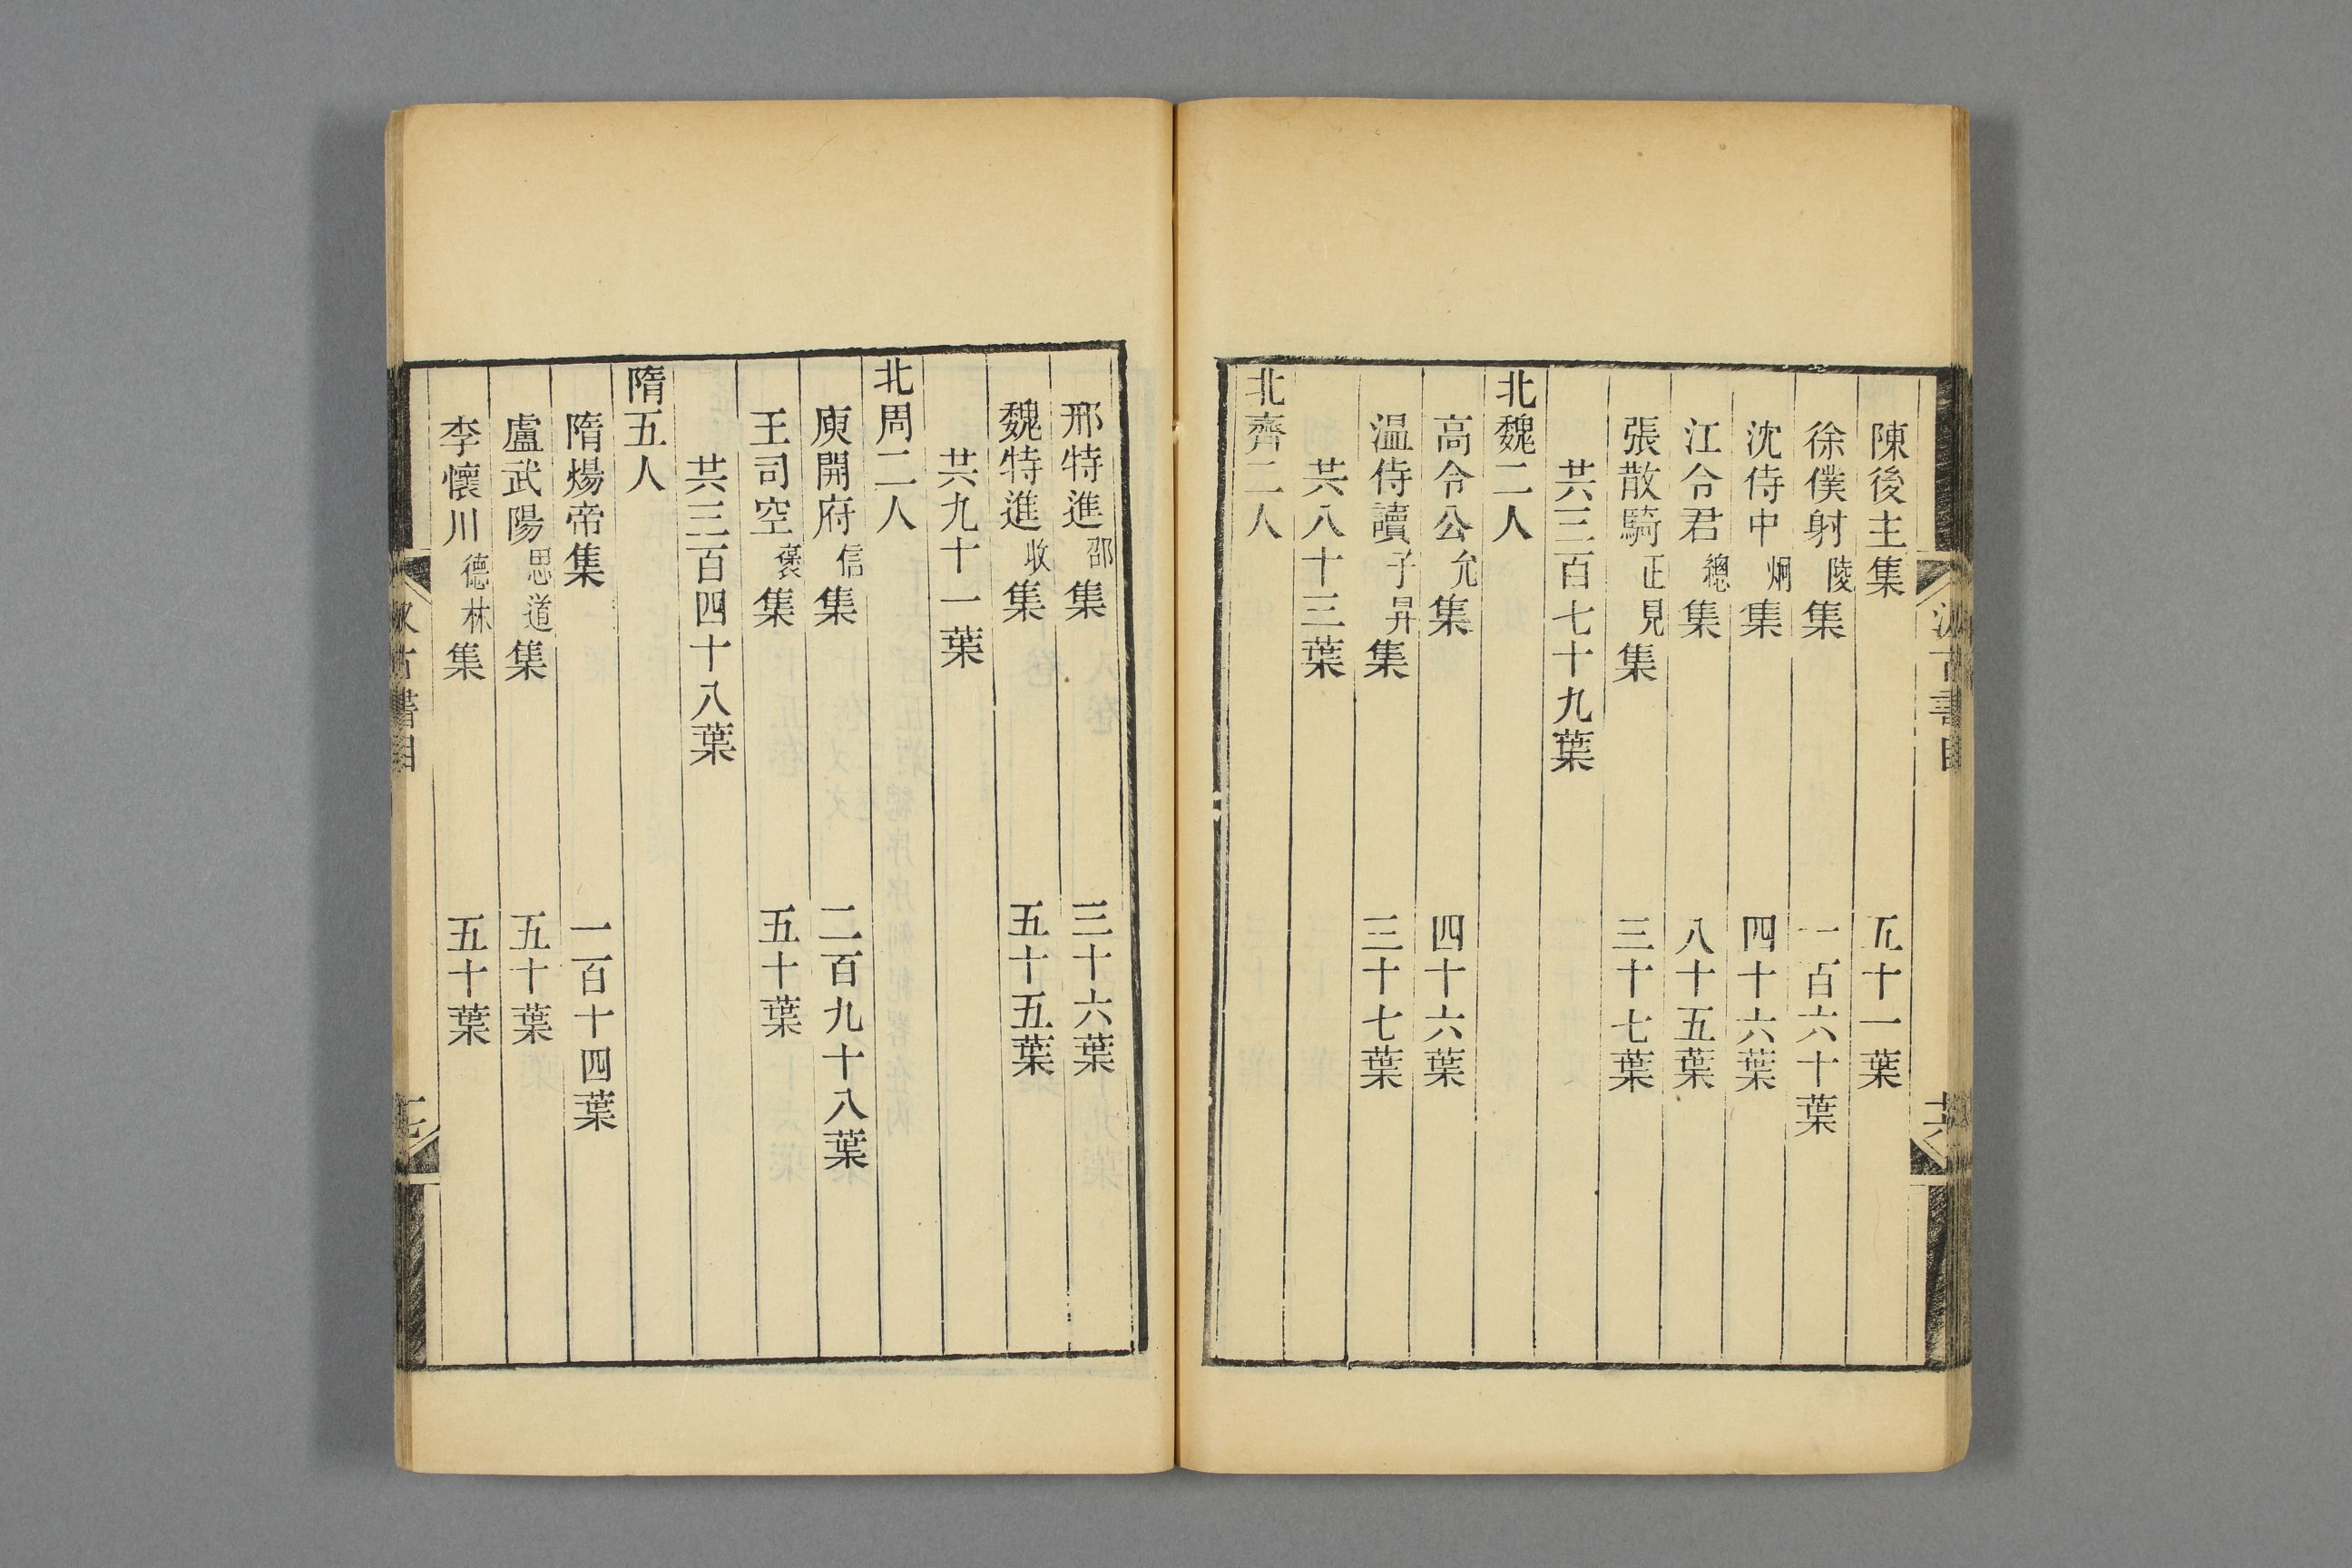 陳後主集 五十一葉
徐僕射陵集 一百六十葉
沈侍中炯集 四十六葉
江令君總集 八十五葉
張散騎正見集 三十七葉
共三百七十九葉
北魏二人
高令公允集 四十六葉
温侍讀子昇集 三十七葉
共八十三葉
北齊二人
邢特進邵集 三十六葉
魏特進收集 五十五葉
共九十一葉
北周二人
庾開府信集 二百九十八葉
王司空褒集 五十葉
共三百四十八葉
隋五人
隋煬帝集 一百十四葉
盧武陽思道集 五十葉
李懷川德林集 五十葉
汲古書目